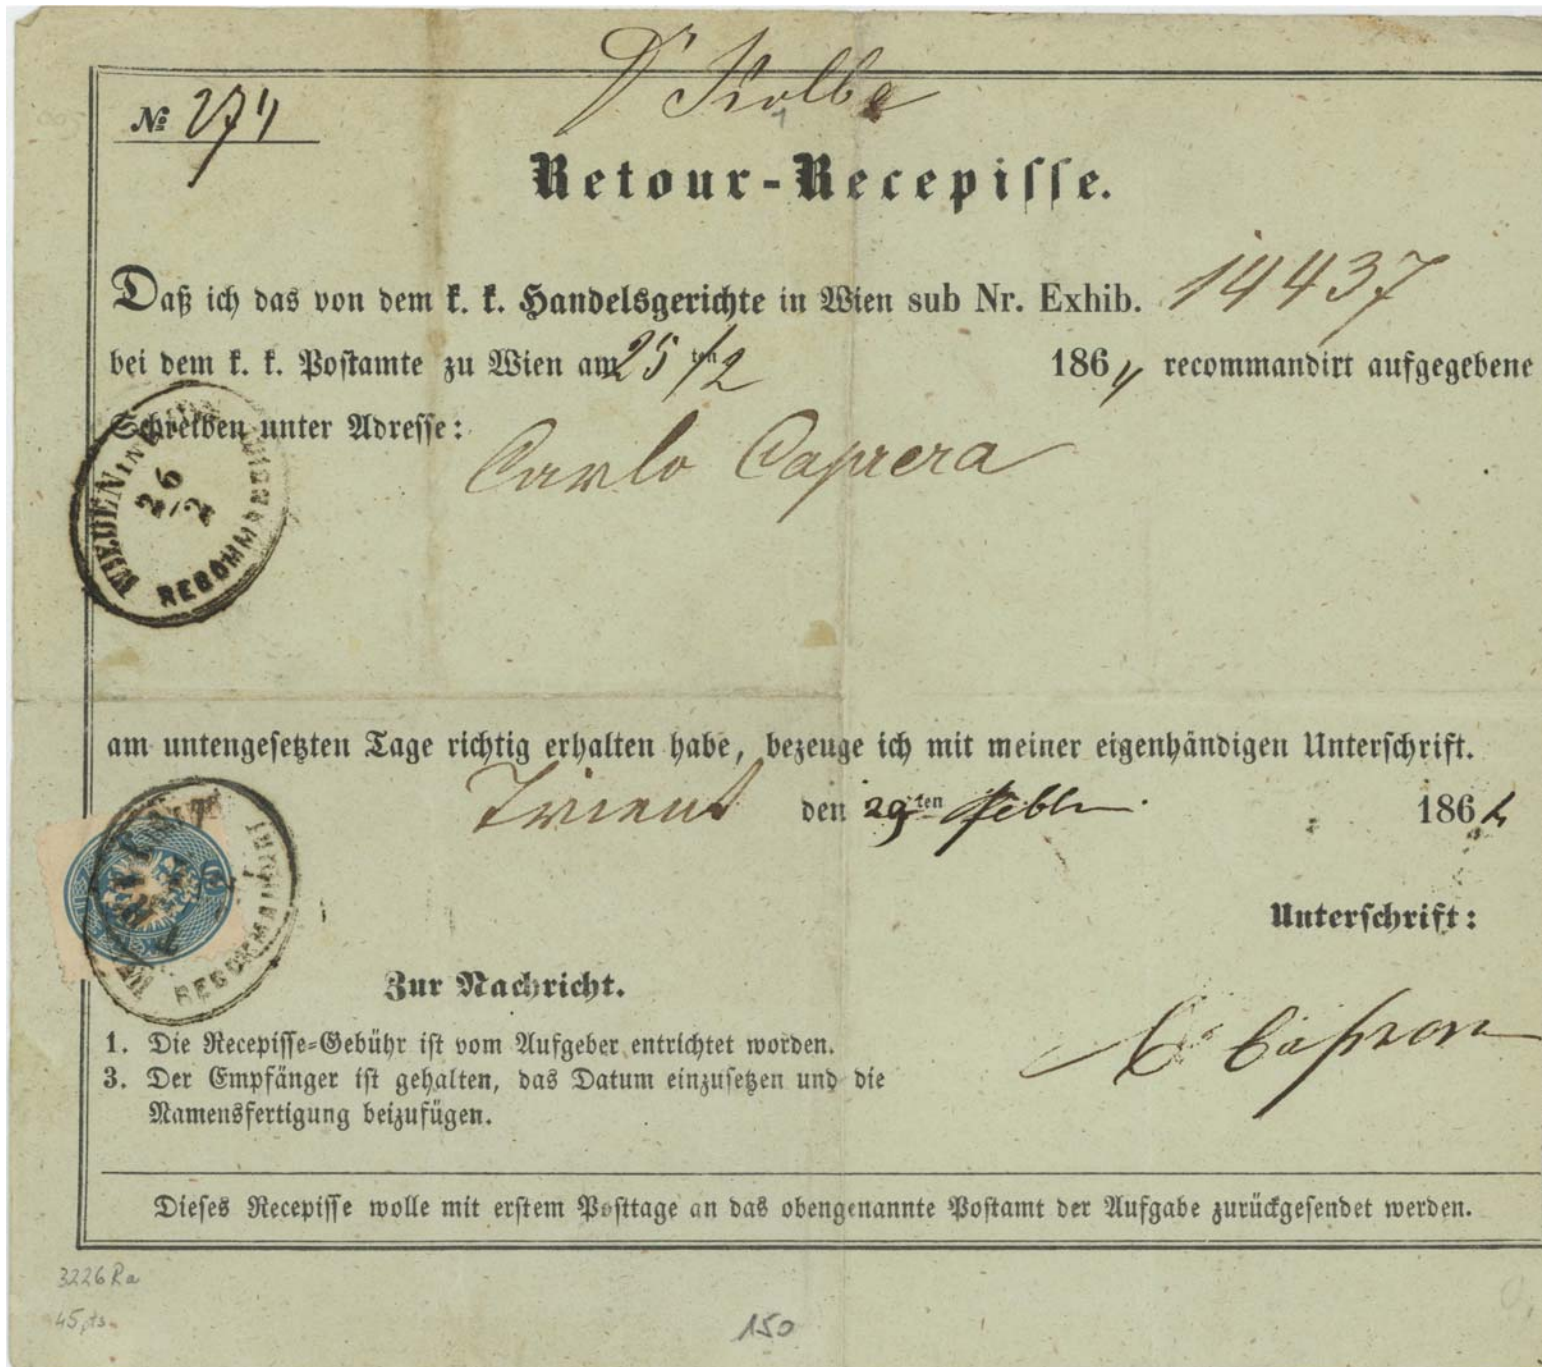 Dr Kolbe
№ 274
Retour-Recepisse.
Daß ich das von dem k. k. Handelsgerichte in Wien sub Nr. Exhib. 14437
bei dem k. k. Postamte zu Wien am 25ten/2 1864 recommandirt aufgegebene
Schreiben unter Adresse:
Carlo Caprera
WIEDEN IN WIEN
26/2
RECOMMANDIRT
am untengesetzten Tage richtig erhalten habe, bezeuge ich mit meiner eigenhändigen Unterschrift.
Trient den 29ten Febbr. 1864
RECOMMANDIRT
Unterschrift:
Zur Nachricht.
1. Die Recepisse-Gebühr ist vom Aufgeber entrichtet worden.
3. Der Empfänger ist gehalten, das Datum einzusetzen und die
Namensfertigung beizufügen.
Dieses Recepisse wolle mit erstem Posttage an das obengenannte Postamt der Aufgabe zurückgesendet werden.
3226 Ra
150